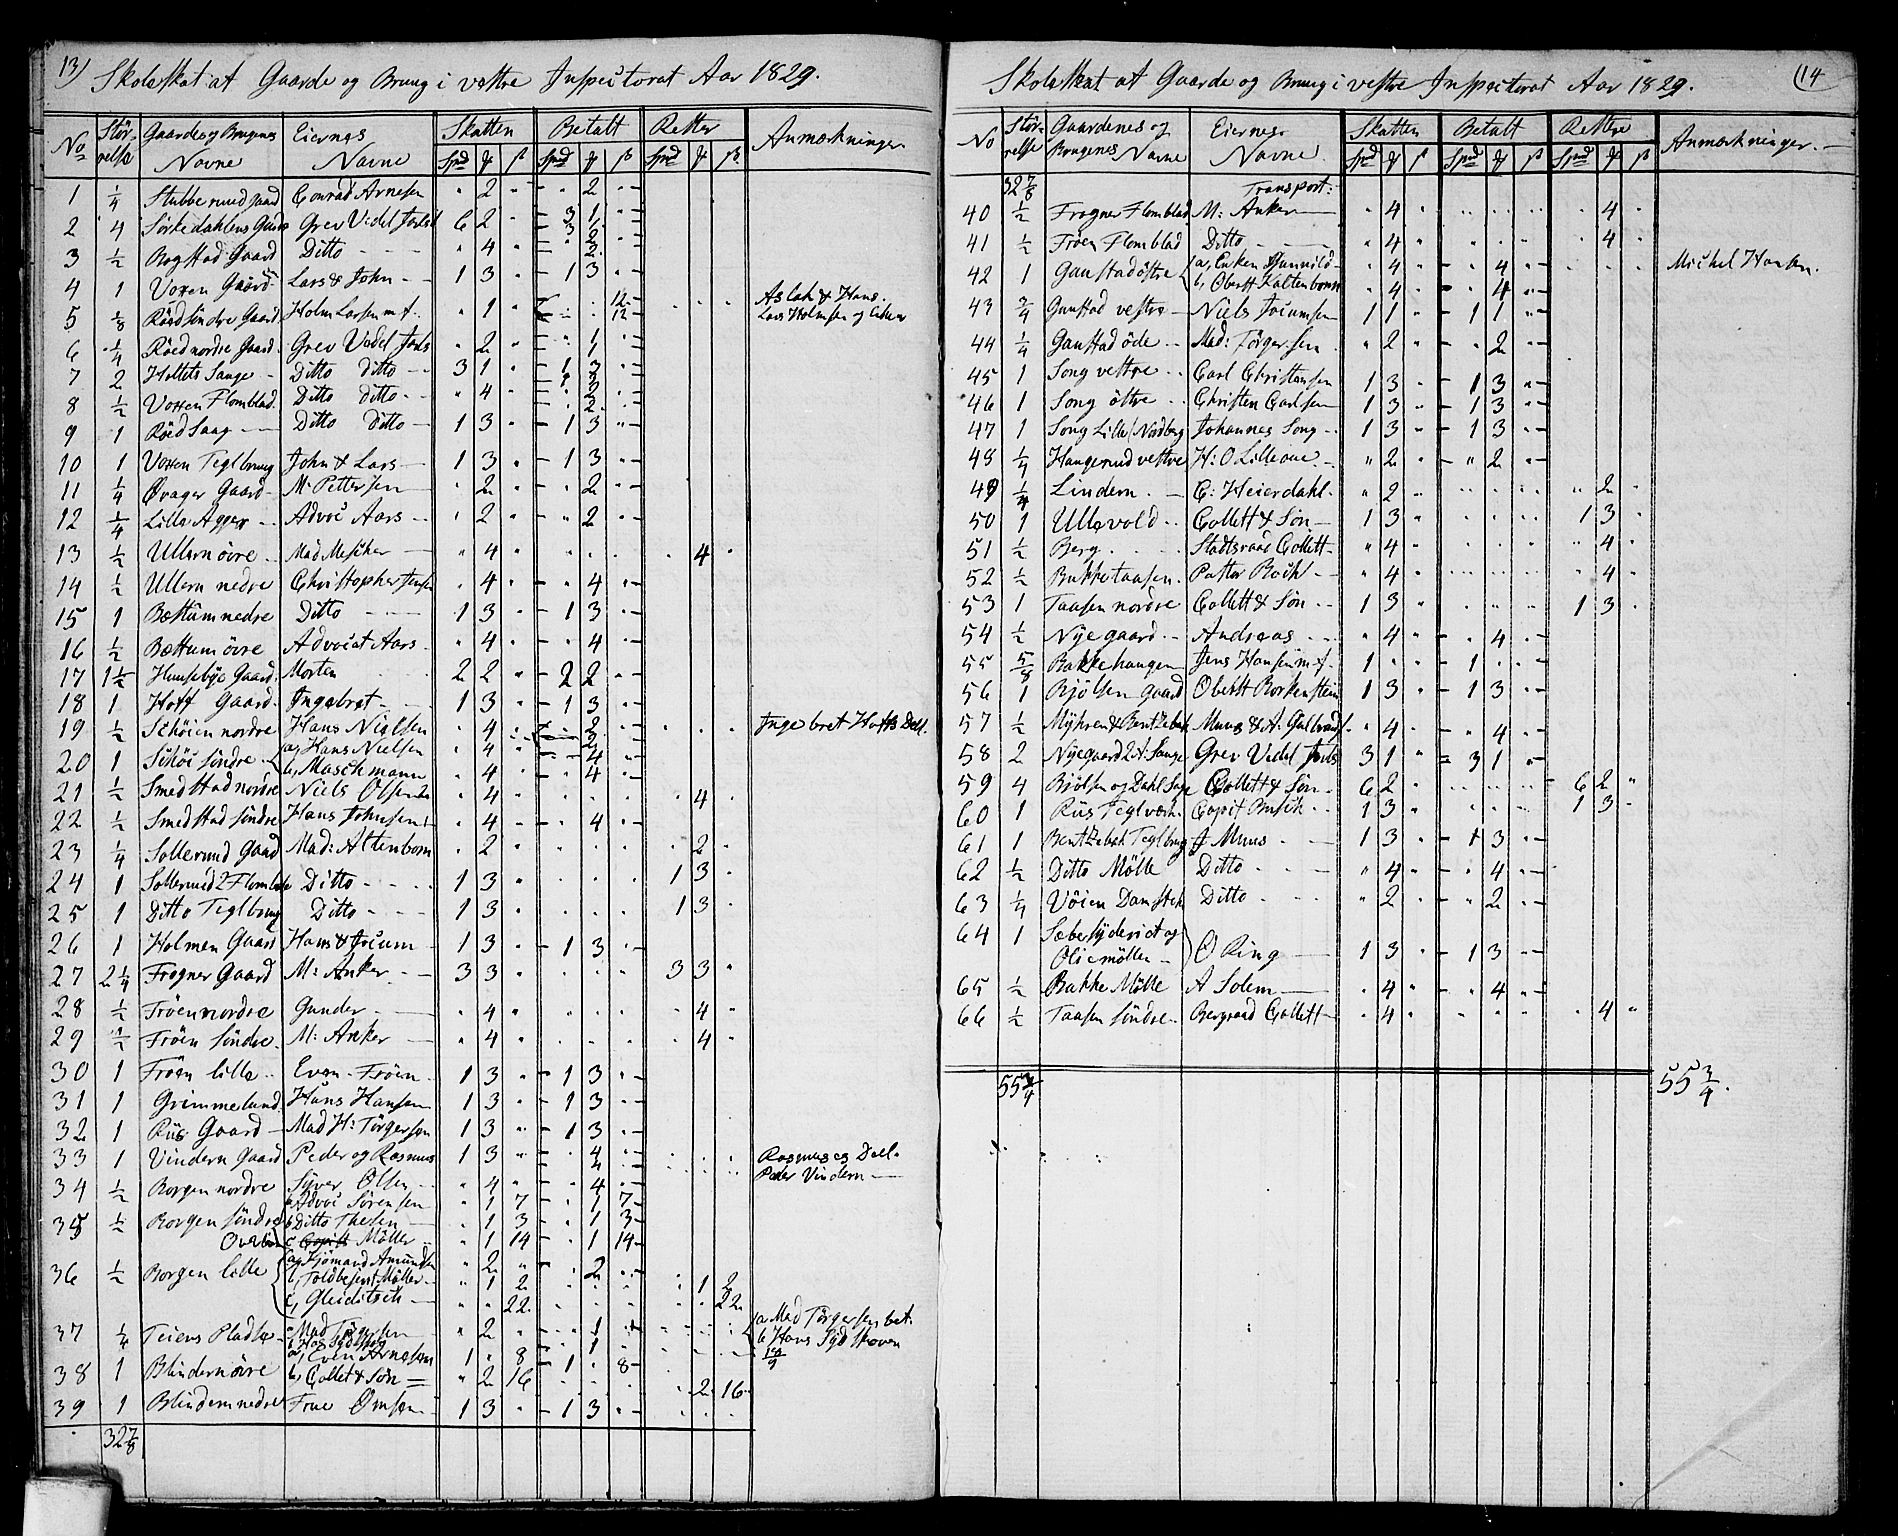 13) Skoleskat af Gaarde og Brug i vestre Inspectorat Aar 1829.
No Stör- Gaarde og Brugenes Eiernes Skatten Betalt Rester Anmærkninger
relse Navne Navne Spd ß Spd ß Spd ß
1 1/4 Stubberuud gaard Conrad Arnesen " 2 " - " 2 " -
2 4 Sörkedahlens Grev Vedel Jarlsb 6 2 " - 3 1 " -
- 3 1 " -
3 1/2 Bogstad Gaard Ditto " 4 " - " 2 " -
- " 2 " -
4 1 Voxen Gaard Lars & John 1 3 " - 1 3 " -
5 1/8 Röed söndre Gaard Holm Larsen " 1 " 12 Aslak & Hans.
12 Lars Holmsen og
6 1/4 Röed nordre Gaard Grev Vedel Jarls " 2 " - " 1 " -
- " 1 " -
7 2 Ditto ditto 3 1 " - 1 3 " -
8 1/2 Voxen Flomblad Ditto ditto " 4 " - " 2 " -
- " 2 " -
9 1 Röed Saug Ditto ditto 1 3 " - 1 3 " -
10 1 Voxen Teglbrug John & Lars 1 3 " - 1 3 " -
11 1/4 Övager Gaard M: Pettersen " 2 " - " 2 " -
12 1/4 Lille Agger Advoc Aars " 2 " - " 2 " -
13 1/2 Ullern övre Mad Mescher " 4 " " 4 "
14 1/2 Ullern nedre Christopher Jensen " 4 " - " 4 " -
15 1 Bestum nedre Ditto 1 3 " - 1 3 " -
16 1/2 Bestum övre Advocat Aars " 4 " - " 4 " -
17 1 1/2 Huusebye Gaard Morten 2 2 " - 2 2 " -
18 1 Hoff Gaard Ingebret 1 3 " - 1 3 " -
19 1/2 Schöien nordre Hans Nielsen " 4 " - " 2 " - Ingebret Hoffs Deel.
- " 2 " -
20 1 Schöi söndre a, Hans Nielsen " 4 " - " 4 "
b, Maschmann " 4 " - " 4 " -
21 1/2 Smedstad nordre Niels Olsen " 4 " " 4 "
22 1/2 Smedstad söndre Hans Johnsen " 4 " - " 4 " -
23 1/4 Sollerud Gaad Mad: Altenborn " 2 " " 2 "
24 1 Sollerud 2 Flomblade Ditto 1 3 " 1 3 "
25 1 Ditto Teglbrug Ditto 1 3 " 1 3 "
26 1 Holmen Gaard Hans & Jocum 1 3 " - 1 3 " -
27 2 1/4 Frogner Gaard M: Anker 3 3 " 3 3 "
28 1/2 Fröen nordre Gunder " 4 " " 4 "
29 1/2 Fröen söndre M: Anker " 4 " " 4 "
30 1 Fröen lille Even Fröen 1 3 " - 1 3 " -
31 1 Grimmelund Hans Hansen 1 3 " - 1 3 " -
32 1 Riis Gaard Mad H: Törgersen 1 3 " - 1 3 " -
33 1 Vindern Gaard Peder og Rasmus 1 3 " - " 4 " - Rasmuses Deel.
- " 4 " - Peder Vindern
34 1/2 Borgen nordre Syver Olsen " 4 " - " 4 " -
35 1/2 Borgen söndre a Advoc Sörensen " 1 7 - " 1 7 -
b Ditto Thesen " 1 3 - " 1 3 -
c Möller " 1 14 - " 1 14 -
36 1/2 Borgen lille a, Amundsen " 2 " " 2 "
b, Möller " 1 2 " 1 2
c, Gleiditsch " " 22 " " 22
37 1/4 Teiens Pladse Mad Törgersen " 2 " - " 1 " - a Mad Törgersen bet.
- " 1 " - b Hans Tydskoven
38 1 Blindern övre a, Even Arnesen 1 " 8 - 1 " 8 -
b, Collet & Sön " 2 16 " 2 16
39 1 Blindern nedre Frue Omsen 1 3 " - 1 3 " -
32 7/8
Skoleskat af Gaarde og Brug i vestre Inspectorat Aar 1829. (14
No Stör- Gaardenes og Eiernes Skatten Betalt Resterne Anmærkninger.
relse Brugenes Navne Navne Spd ß Spd ß Spd ß
32 7/8 Transport:
40 1/2 Frogner Flomblad M: Anker " 4 " " 4 "
41 1/2 Fröen Flomblad Ditto " 4 " " 4 "
42 1 Gaustad östre a, Enken Gunnild " 4 " " 4 " - Michel Hansen.
b, Oberst Kaltenborn " 4 " " 4 " -
43 3/4 Gaustad vestre Niels Jocumsen 1 1 " - 1 1 " -
44 1/4 Gaustad öde Mad: Törgersen " 2 " - " 2 " -
45 1 Song vestre Carl Christensen 1 3 " - 1 3 " -
46 1 Song östre Christen Carlsen 1 3 " - 1 3 " -
47 1 Song Lille (Nordberg Johannes Song 1 3 " - 1 3 " -
48 1/4 Haugerud vestre H: O Lilleaae " 2 " - " 2 " -
49 1/4 Lindern C: Heierdahl " 2 " " 2 "
50 1 Ullevold Collett & Sön 1 3 " 1 3 "
51 1/2 Berg Stadtsraad Collett " 4 " " 4 "
52 1/2 Bakketaasen Pastor Bech " 4 " " 4 "
53 1 Taasen nordre Collett & Sön 1 3 " 1 3 "
54 1/2 Nyegaard Andreas " 4 " - " 4 " -
55 5/8 Bakkehaugen Jens Hansen 1 " " - 1 " " -
56 1 Bjölsen Gaard Oberst Borkenstein 1 3 " - 1 3 " -
57 1/2 Myhren & Bentzebak Muus & A: " 4 " - " 4 " -
58 2 Nyegaard 2 Sauge Grev Vedel Jarls 3 1 " - 3 1 " -
59 4 Bjölsen og Dahl Sauge Collett & Sön 6 2 " 6 2 "
60 1 Riis Teglværk 1 3 " 1 3 "
61 1 Bentzebak Teglbrug J Muus 1 3 " - 1 3 " -
62 1/2 Ditto Mölle Ditto " 4 " - " 4 " -
63 1/4 Vöien Damstok Ditto " 2 " - " 2 " -
64 1 Sæbesyderiet og
Oliemöllen O Ring 1 3 " - 1 3 " -
65 1/2 Bakke Mölle A Solem " 4 " - " 4 " -
66 1/2 Taasen söndre Bergraad Collett " 4 " " 4 "
55 3/4 55 3/4.